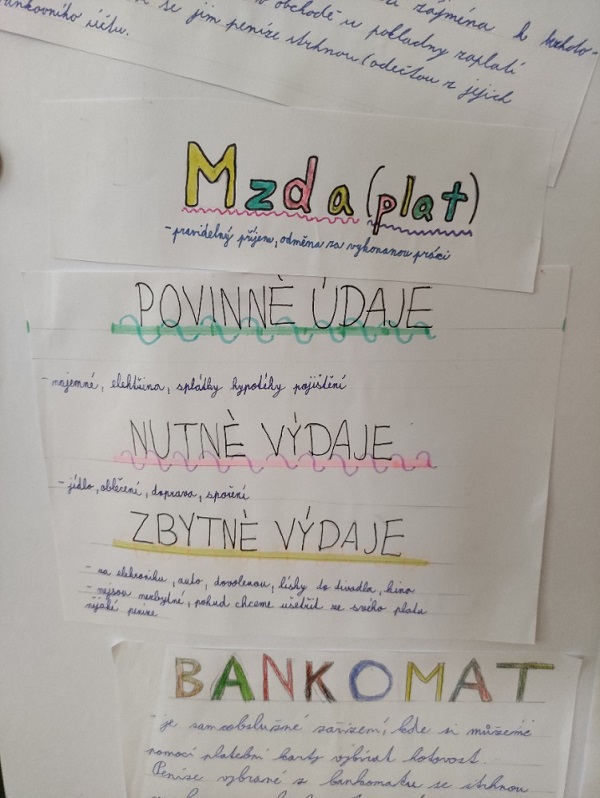 zájména k každo-
se jim peníze strhnou (odečtou z jejich
obchodě u pokladny zaplatí
bankovního účtu.
Mzda (plat)
- pravidelný příjem, odměna za vykonanou práci
POVINNÈ ÚDAJE
- najemné, elektřina, splátky hypotéky pojištění
NUTNÈ VÝDAJE
- jídlo, oblečení, doprava, spoření
ZBYTNÈ VÝDAJE
- na elekroniku, auto, dovolenou, lísky do divadla, kina
- nejsou nezbytné, pokud chceme ušetřit ze svého platu
nějaké peníze
BANKOMAT
- je samoobslužné zařízení, kde si můžeme
pomocí platební karty vybírat hotovost.
Peníze vybrané z bankomatu se strhnou